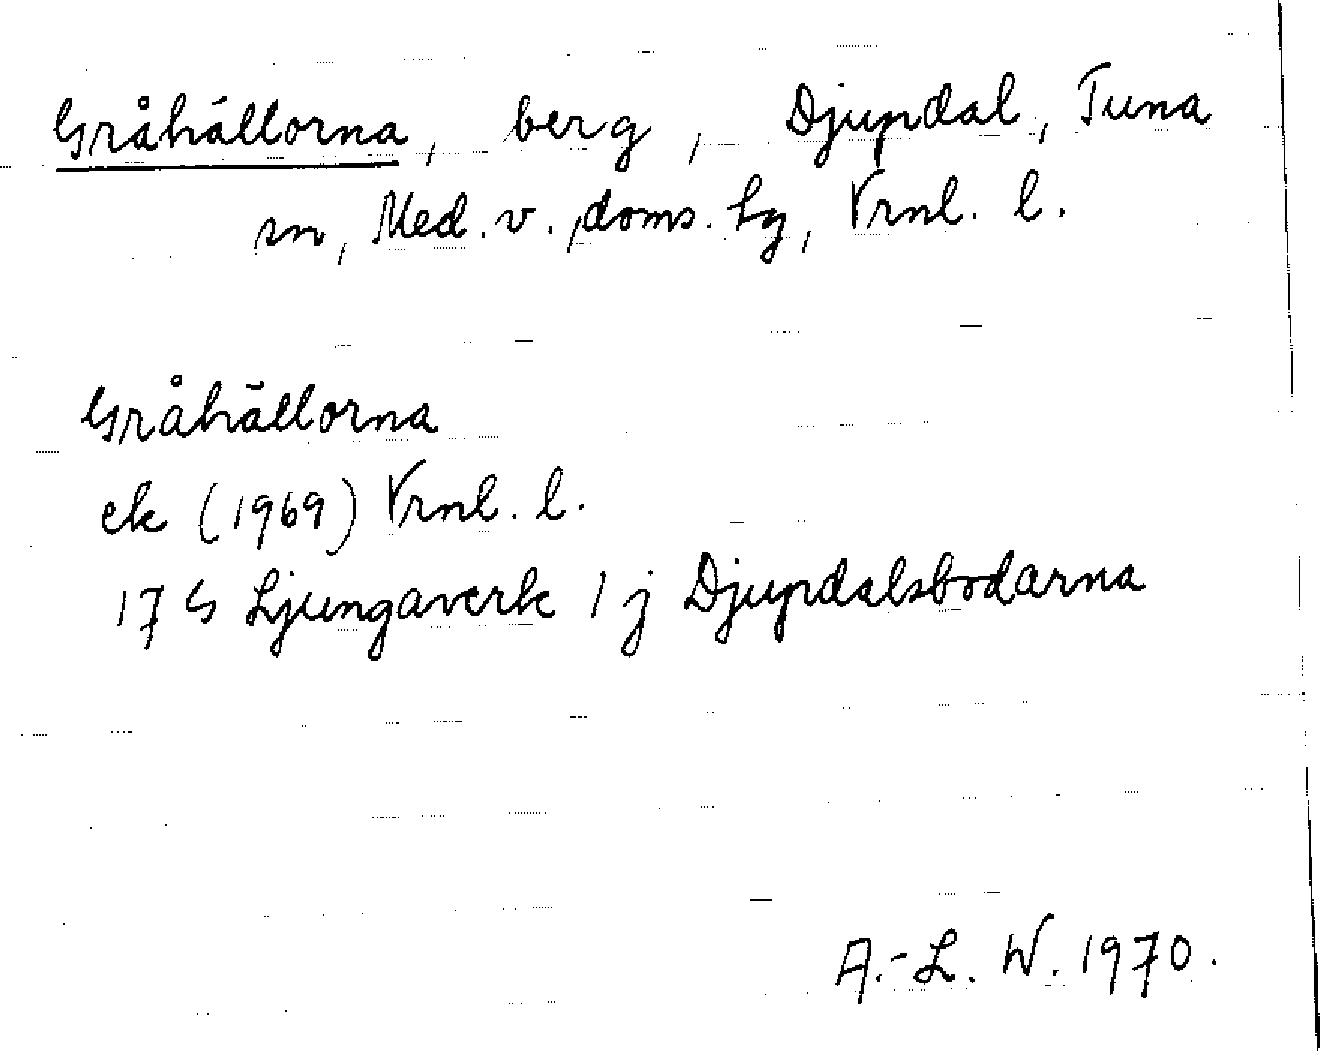 Gråhällorna, berg, Djupdal, Tuna
sn, Med. v. doms. hg, Vrnl. l.
Gråhällorna
ek (1969) Vrnl. l.
17 G Ljungaverk 1 j Djupdalsbodarna
A.-L. W. 1970.